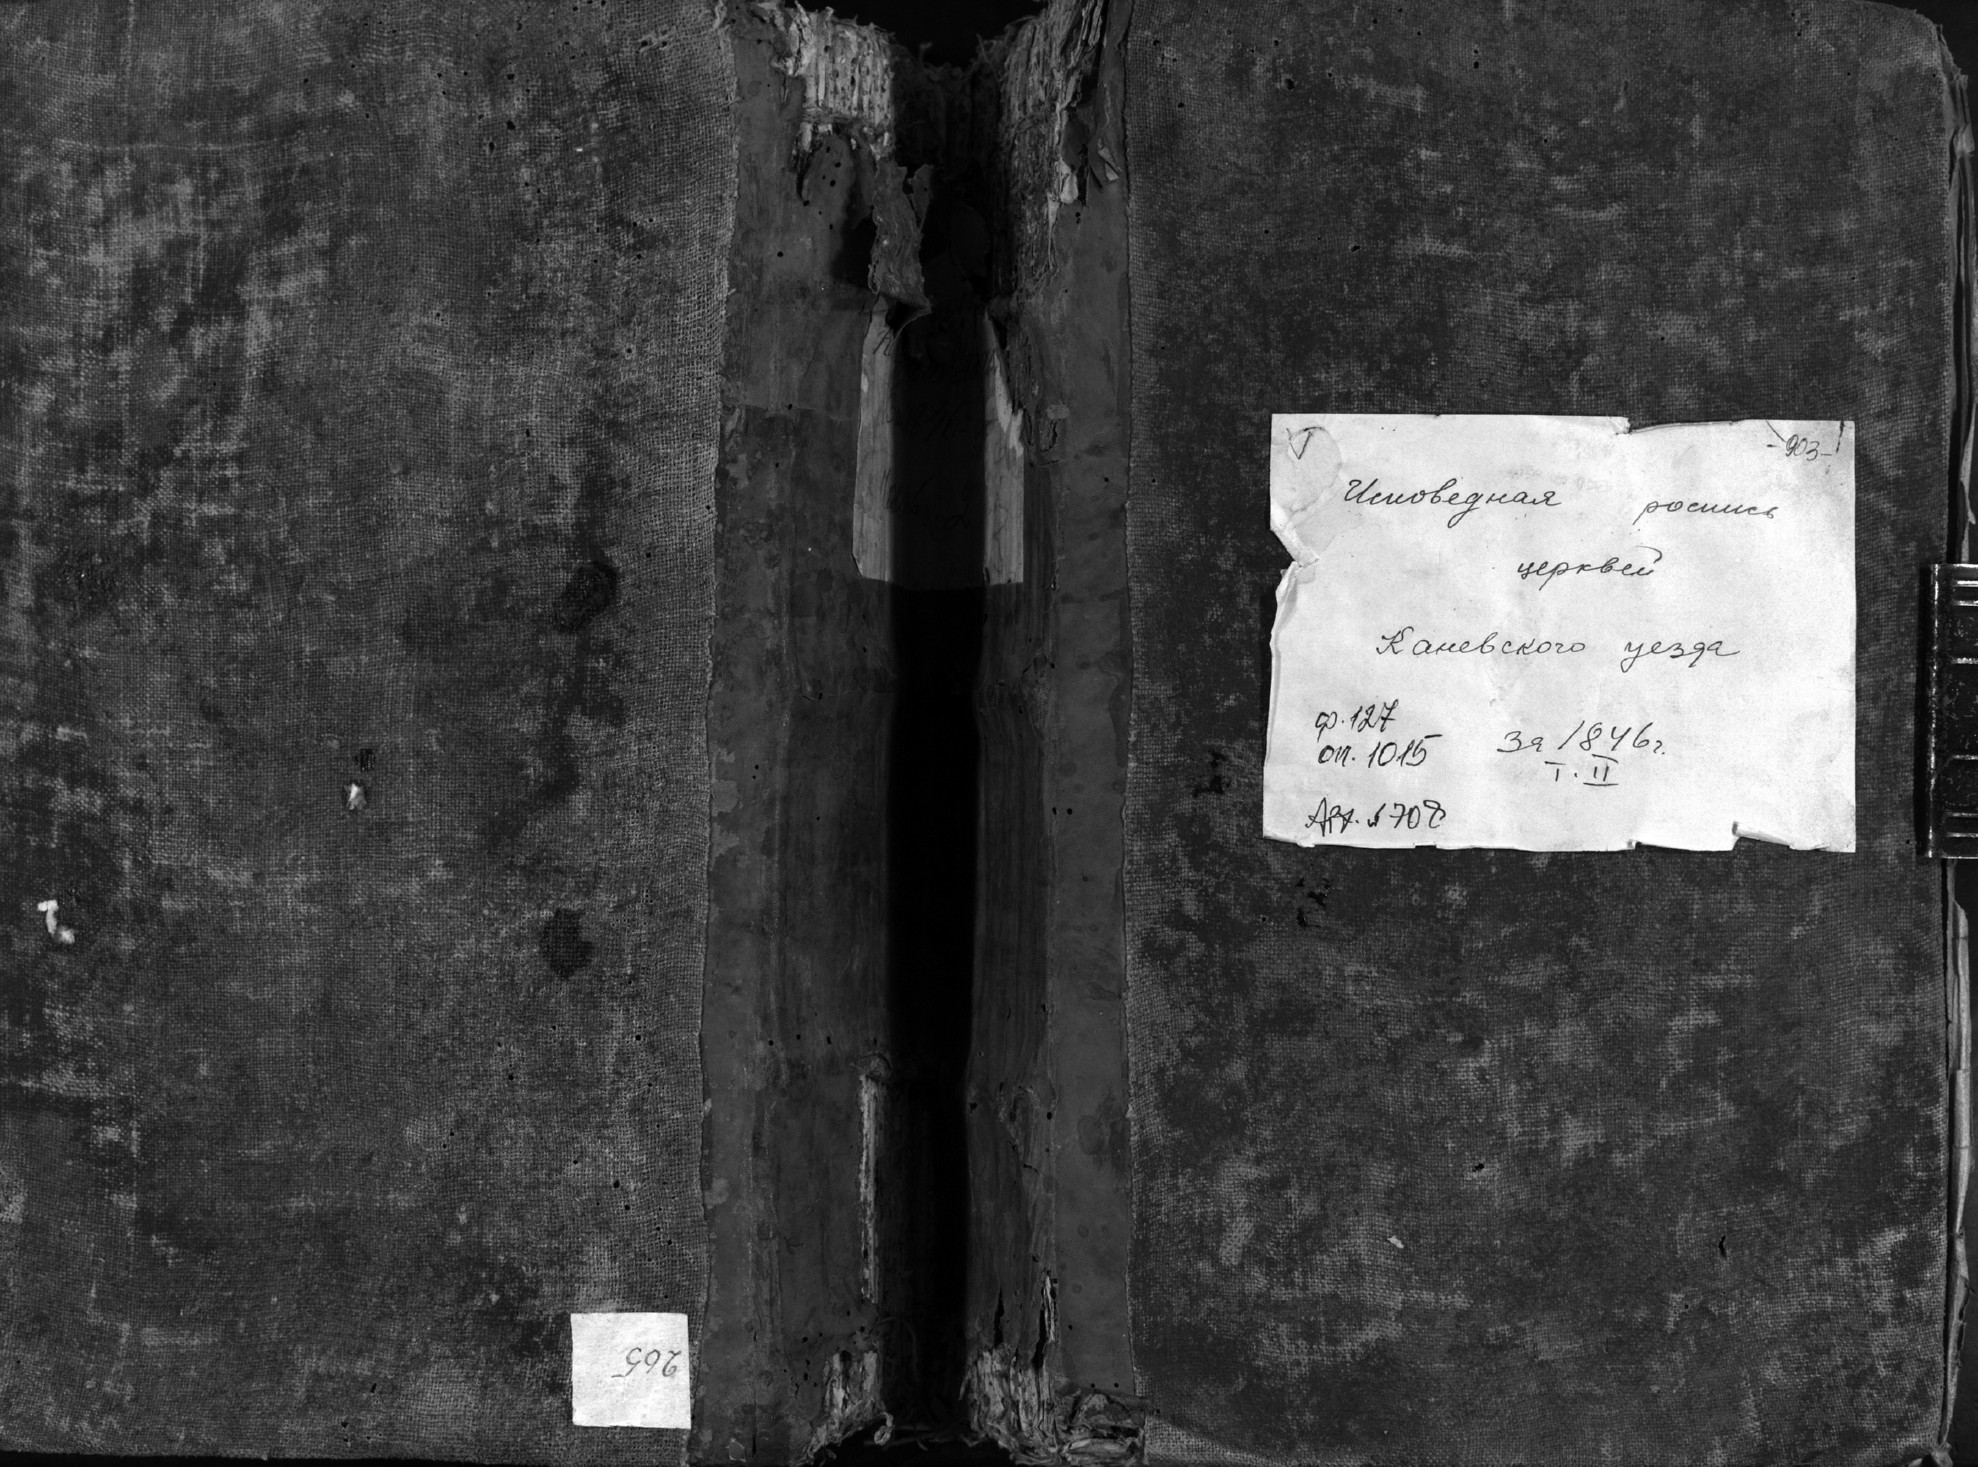 -903-
Исповедная роспись
церквей
Каневского уезда
ф. 127
оп. 1015 за 1846 г.
т. II
708
265